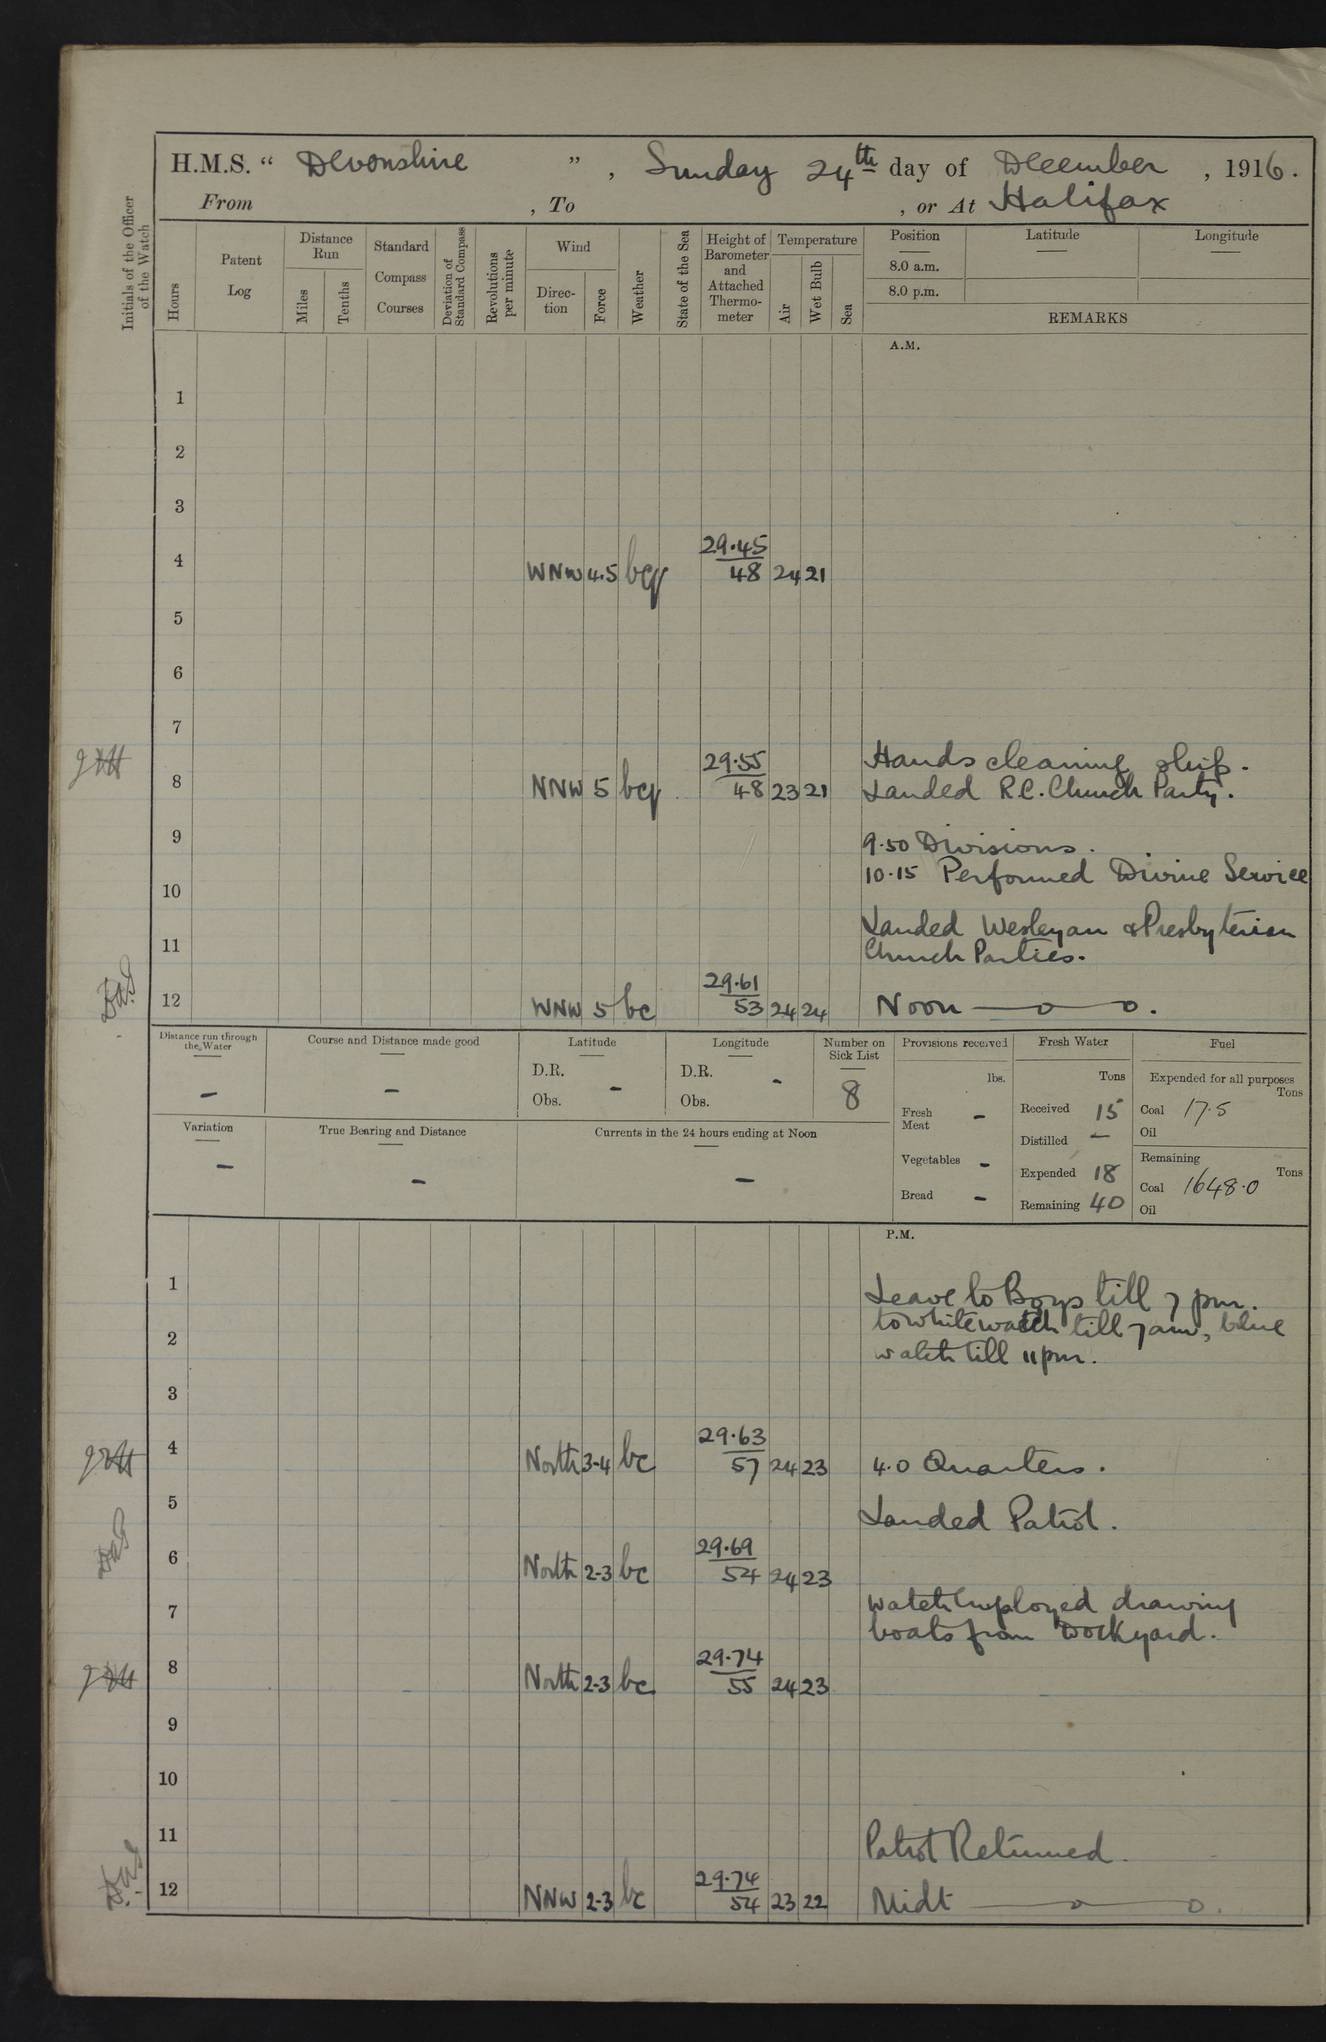 H.M.S. “ Devonshire ” , Sunday 24th day of December , 1916.
From , To , or At Halifax
Initials of the Officer of the Watch
Hours
Patent Log
Distance Run
Miles
Tenths
Standard Compass Courses
Deviation of Standard Compass
Revolutions per minute
Wind
Direction
Force
Weather
State of the Sea
Height of Barometer and Attached Thermometer
Temperature
Air
Wet Bulb
Sea
Position Latitude Longitude
8.0 a.m.
8.0 p.m.
REMARKS
A.M.
1
2
3
29.45
4 WNW 4.5 bcq 48 24 21
5
6
7
29.55 Hands cleaning ship.
8 NNW 5 bcq 48 23 21 Landed R.C. Church Party.
9 9.50 Divisions.
10 10.15 Performed Divine Service
Landed Wesleyan & Presbyterian
11 Church Parties.
29.61
12 WNW 5 bc 53 24 24 Noon — o — o.
Distance run through the Water
-
Course and Distance made good
-
Latitude
D.R. -
Obs.
Longitude
D.R. -
Obs.
Number on Sick List
8
Provisions received
lbs.
Fresh Meat -
Vegetables -
Bread -
Fresh Water
Tons
Received 15
Distilled -
Expended 18
Remaining 40
Fuel
Expended for all purposes
Tons
Coal 17.5
Oil
Remaining
Tons
Coal 1648.0
Oil
Variation
-
True Bearing and Distance
-
Currents in the 24 hours ending at Noon
-
P.M.
1 Leave to Boys till 7 pm.
to white watch till 7am, blue
2 watch till 11pm.
3
29.63
4 North 3-4 bc 57 24 23 4.0 Quarters.
5 Landed Patrol.
29.69
6 North 2-3 bc 54 24 23
7 Watch employed drawing
boats from Dockyard.
29.74
8 North 2-3 bc 55 24 23
9
10
11 Patrol Returned.
29.74
12 NNW 2-3 bc 54 23 22 Midt — o — o.